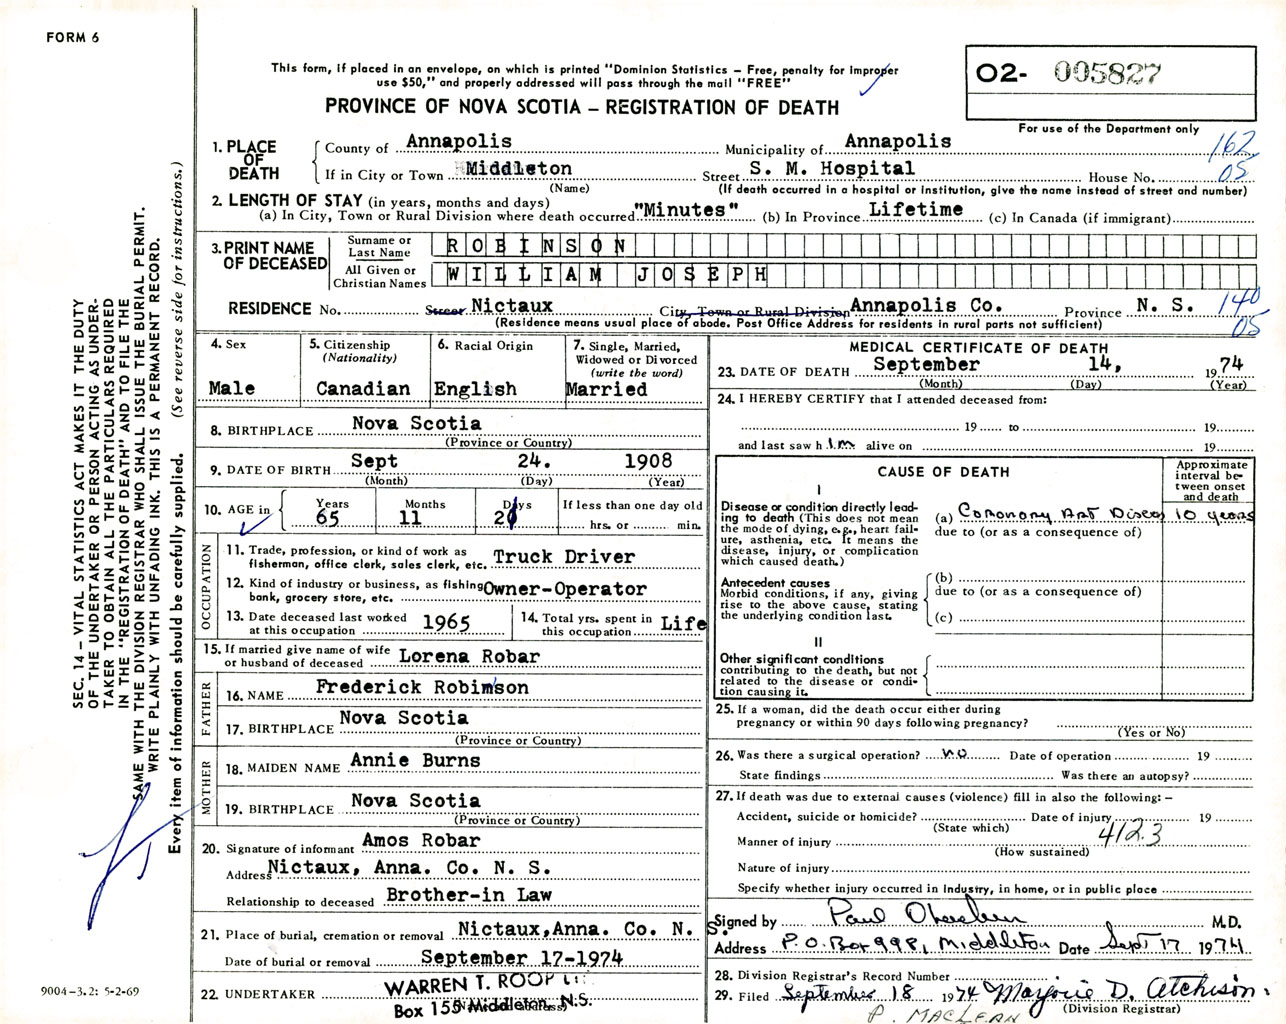 FORM 6
This form, if placed in an envelope, on which is printed "Dominion Statistics – Free, penalty for improper
use $50," and properly addressed will pass through the mail "FREE"
PROVINCE OF NOVA SCOTIA – REGISTRATION OF DEATH
02- 005827
For use of the Department only
162
05
1. PLACE OF DEATH
County of Annapolis Municipality of Annapolis
If in City or Town Middleton Street S. M. Hospital House No.
(Name) (If death occurred in a hospital or institution, give the name instead of street and number)
2. LENGTH OF STAY (in years, months and days)
(a) In City, Town or Rural Division where death occurred "Minutes" (b) In Province Lifetime (c) In Canada (if immigrant)
3. PRINT NAME OF DECEASED
Surname or Last Name ROBINSON
All Given or Christian Names WILLIAM JOSEPH
RESIDENCE No. Street Nictaux City, Town or Rural Division Annapolis Co. Province N. S.
140
05
(Residence means usual place of abode. Post Office Address for residents in rural parts not sufficient)
4. Sex
Male
5. Citizenship
(Nationality)
Canadian
6. Racial Origin
English
7. Single, Married,
Widowed or Divorced
(write the word)
Married
8. BIRTHPLACE Nova Scotia
(Province or Country)
9. DATE OF BIRTH Sept 24. 1908
(Month) (Day) (Year)
10. AGE in
Years Months Days If less than one day old
65 11 20 hrs. or min.
OCCUPATION
11. Trade, profession, or kind of work as
fisherman, office clerk, sales clerk, etc. Truck Driver
12. Kind of industry or business, as fishing
bank, grocery store, etc. Owner-Operator
13. Date deceased last worked
at this occupation 1965
14. Total yrs. spent in
this occupation Life
15. If married give name of wife
or husband of deceased Lorena Robar
FATHER
16. NAME Frederick Robinson
17. BIRTHPLACE Nova Scotia
(Province or Country)
MOTHER
18. MAIDEN NAME Annie Burns
19. BIRTHPLACE Nova Scotia
(Province or Country)
20. Signature of informant Amos Robar
Address Nictaux, Anna. Co. N. S.
Relationship to deceased Brother-in Law
21. Place of burial, cremation or removal Nictaux,Anna. Co. N. S.
Date of burial or removal September 17-1974
22. UNDERTAKER WARREN T. ROOP
Box 155 Middleton, N.S.
MEDICAL CERTIFICATE OF DEATH
23. DATE OF DEATH September 14, 1974
(Month) (Day) (Year)
24. I HEREBY CERTIFY that I attended deceased from:
19 to 19
and last saw him alive on 19
CAUSE OF DEATH
Approximate
interval be-
tween onset
and death
I
Disease or condition directly lead-
ing to death (This does not mean
the mode of dying, e.g., heart fail-
ure, asthenia, etc. It means the
disease, injury, or complication
which caused death.)
(a) Coronary Art Diseas 10 years
due to (or as a consequence of)
Antecedent causes
Morbid conditions, if any, giving
rise to the above cause, stating
the underlying condition last.
(b)
due to (or as a consequence of)
(c)
II
Other significant conditions
contributing to the death, but not
related to the disease or condi-
tion causing it.
25. If a woman, did the death occur either during
pregnancy or within 90 days following pregnancy?
(Yes or No)
26. Was there a surgical operation? no Date of operation 19
State findings Was there an autopsy?
27. If death was due to external causes (violence) fill in also the following: –
Accident, suicide or homicide? Date of injury 19
(State which)
Manner of injury 412.3
(How sustained)
Nature of injury
Specify whether injury occurred in industry, in home, or in public place
Signed by Paul M.D.
Address P.O. Box 998, Middleton Date Sept 17 1974
28. Division Registrar's Record Number
29. Filed September 18 1974 Marjorie D. Atchison
(Division Registrar)
P. MACLEAN
SEC. 14 – VITAL STATISTICS ACT MAKES IT THE DUTY
OF THE UNDERTAKER OR PERSON ACTING AS UNDER-
TAKER TO OBTAIN ALL THE PARTICULARS REQUIRED
IN THE "REGISTRATION OF DEATH" AND TO FILE THE
SAME WITH THE DIVISION REGISTRAR WHO SHALL ISSUE THE BURIAL PERMIT.
WRITE PLAINLY WITH UNFADING INK. THIS IS A PERMANENT RECORD.
Every item of information should be carefully supplied. (See reverse side for instructions.)
9004-3.2: 5-2-69